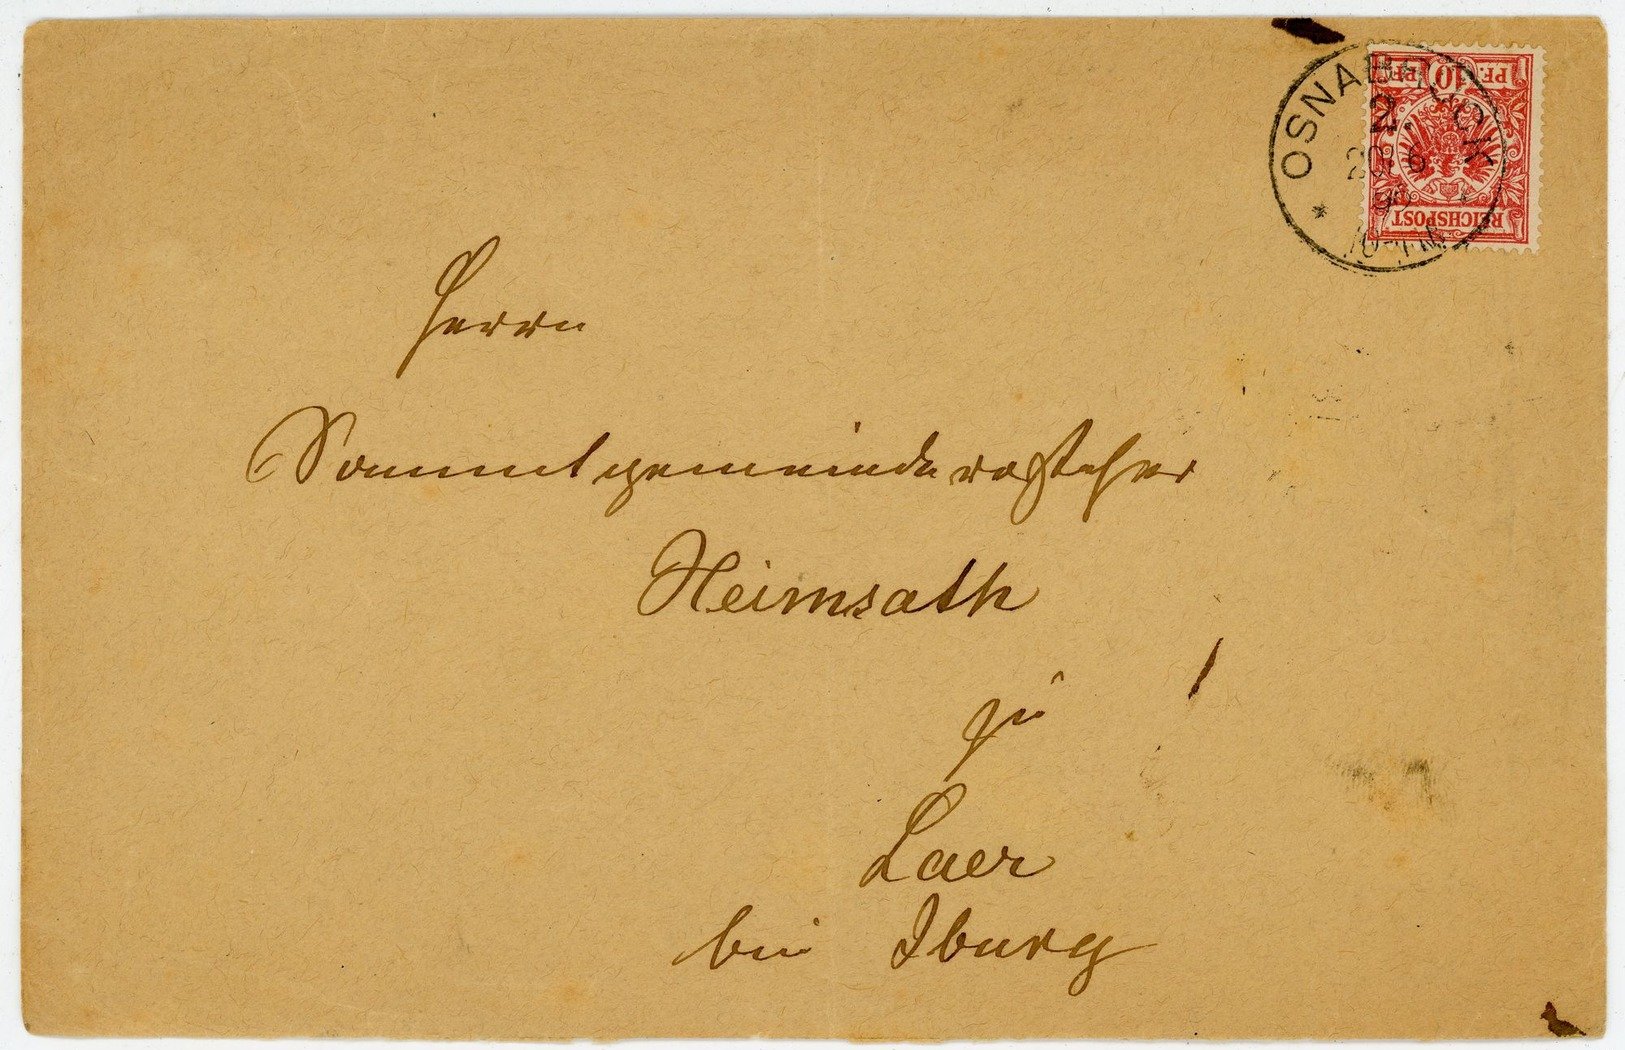 OSNABRÜCK
2.
20/6
90
10-11N
PF. 10 PF.
REICHSPOST
Herrn
Sammtgemeindevorsteher
Heimsath
zu
Laer
bei Iburg